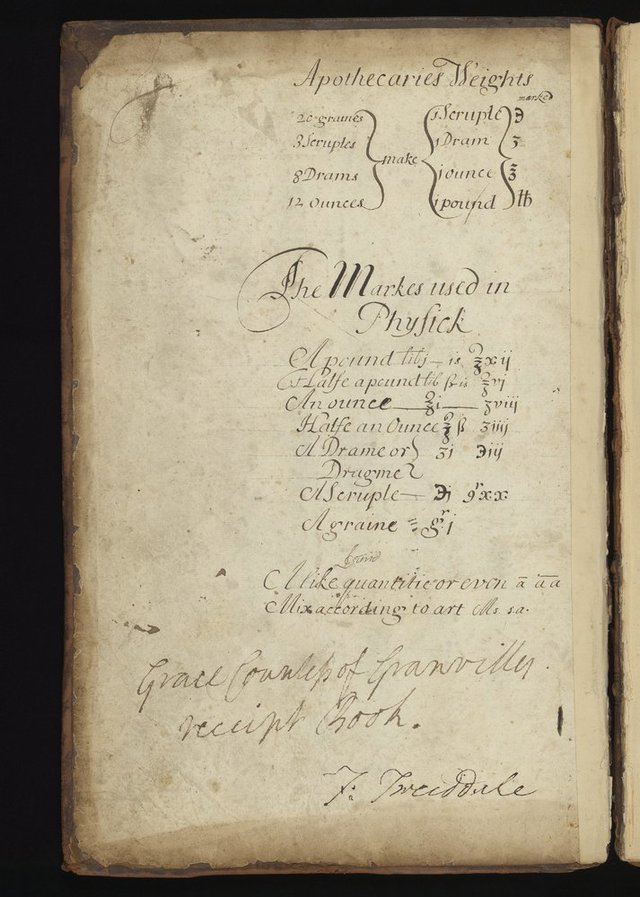 Apothecaries Weights
marked
20 graines 1 Scruple ℈
3 Scruples 1 Dram ʒ
make
8 Drams 1 ounce ℥
12 ounces 1 pound ℔
The Markes used in
Physick
A pound libj — is ℥xij
Halfe a pound lib ß is ℥vj
An ounce — ℥i — ʒviij
Halfe an Ounce ℥ ß ʒiiij
A Drame or ʒi ℈iij
Dragme
A Scruple — ℈j gʳxx
A graine = gʳ.j
A like quantitie or even a̅ a̅a̅
Mix according to art Ms. s.a.
Grace Countess of Granvilles
receipt Book.
F: Tweeddale